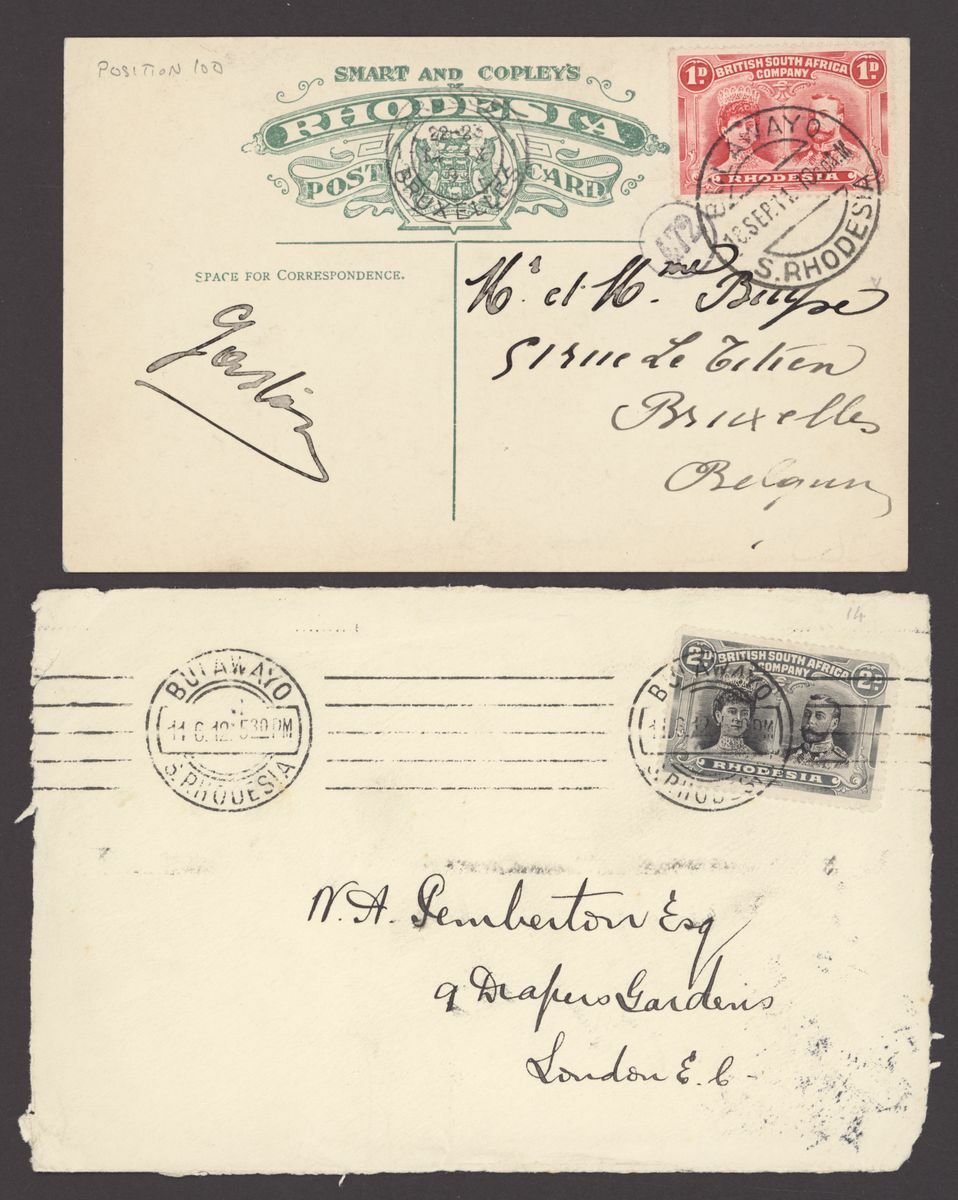 POSITION 100
SMART AND COPLEY'S
RHODESIA
POST CARD
1D BRITISH SOUTH AFRICA COMPANY 1D
RHODESIA
22-23
BRUXELLES
BULAWAYO
18.SEP.11
S. RHODESIA
472
SPACE FOR CORRESPONDENCE.
Mr et Mme Buyse
51 rue Le Titien
Bruxelles
Belgium
Gaston
14
BULAWAYO
11.6.12 530 PM
S. RHODESIA
BULAWAYO
S. RHODESIA
2D BRITISH SOUTH AFRICA COMPANY 2D
RHODESIA
Pemberton Esq
9 Drapers Gardens
London E.C